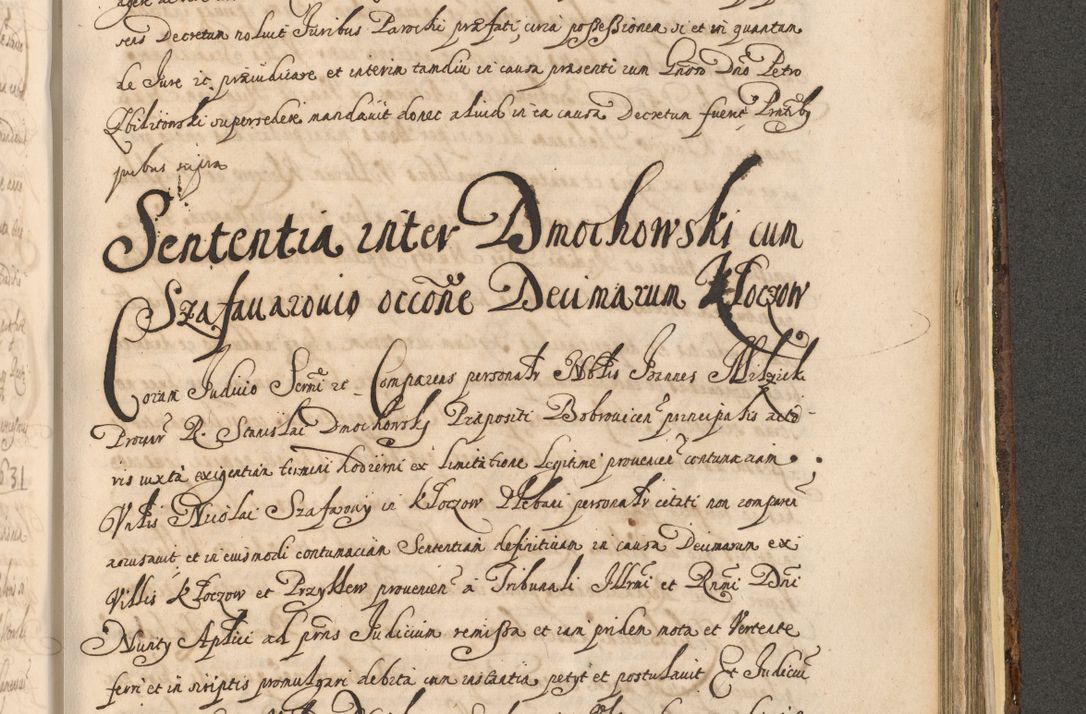 reas Decretum noluit Juribus Parochi præfati, circa possessionem si et in quantum
de Jure etc. præiudicare et interim tamdiu in causa præsenti cum Gnoso Dno Petro
Zbilitowski supersedere mandavit donec aliud in ea causa Decretum fuerit Prntiby
quibus supra
Sententia inter Dmochowski cum
Szafarzowio occõne Decimarum Kłoczow
Coram Judicio Sermi etc Comparens personalr Noblis Joannes
Procur R. Stanislai Dmochowskÿ Præpositi Bobrovicen principalis acto-
ris iuxta exigentiam termini hodierni ex limitatione Legitime provenien contumaciam
Vnblis Nicolai Szafarowy in Kłoczow Plebani personalr citati non comparen
accusavit et in eiusmodi contumaciam Sententiam definitivam in causa Decimarum ex
Villis Kłoczow et Przyklew provenien a Tribunali Illrmi et Rnmi Dni
Nunty Aplici ad prñs Judicium remissa et iam pridem nota et Vertente
ferri et in scriptis promulgari debita cum instantia petyt et postulavit Et Judiciū